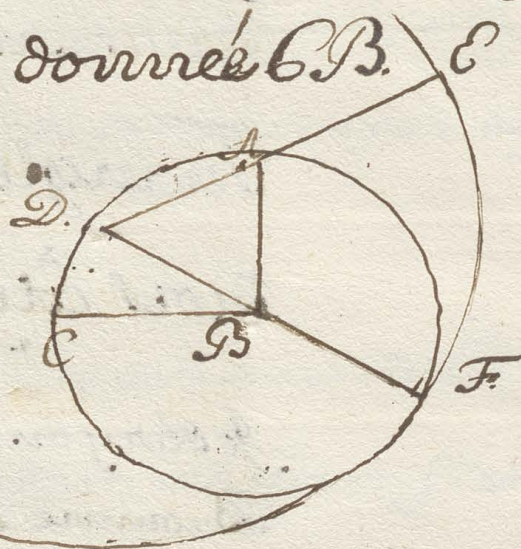 donnée CB. E
A
D.
C B F.